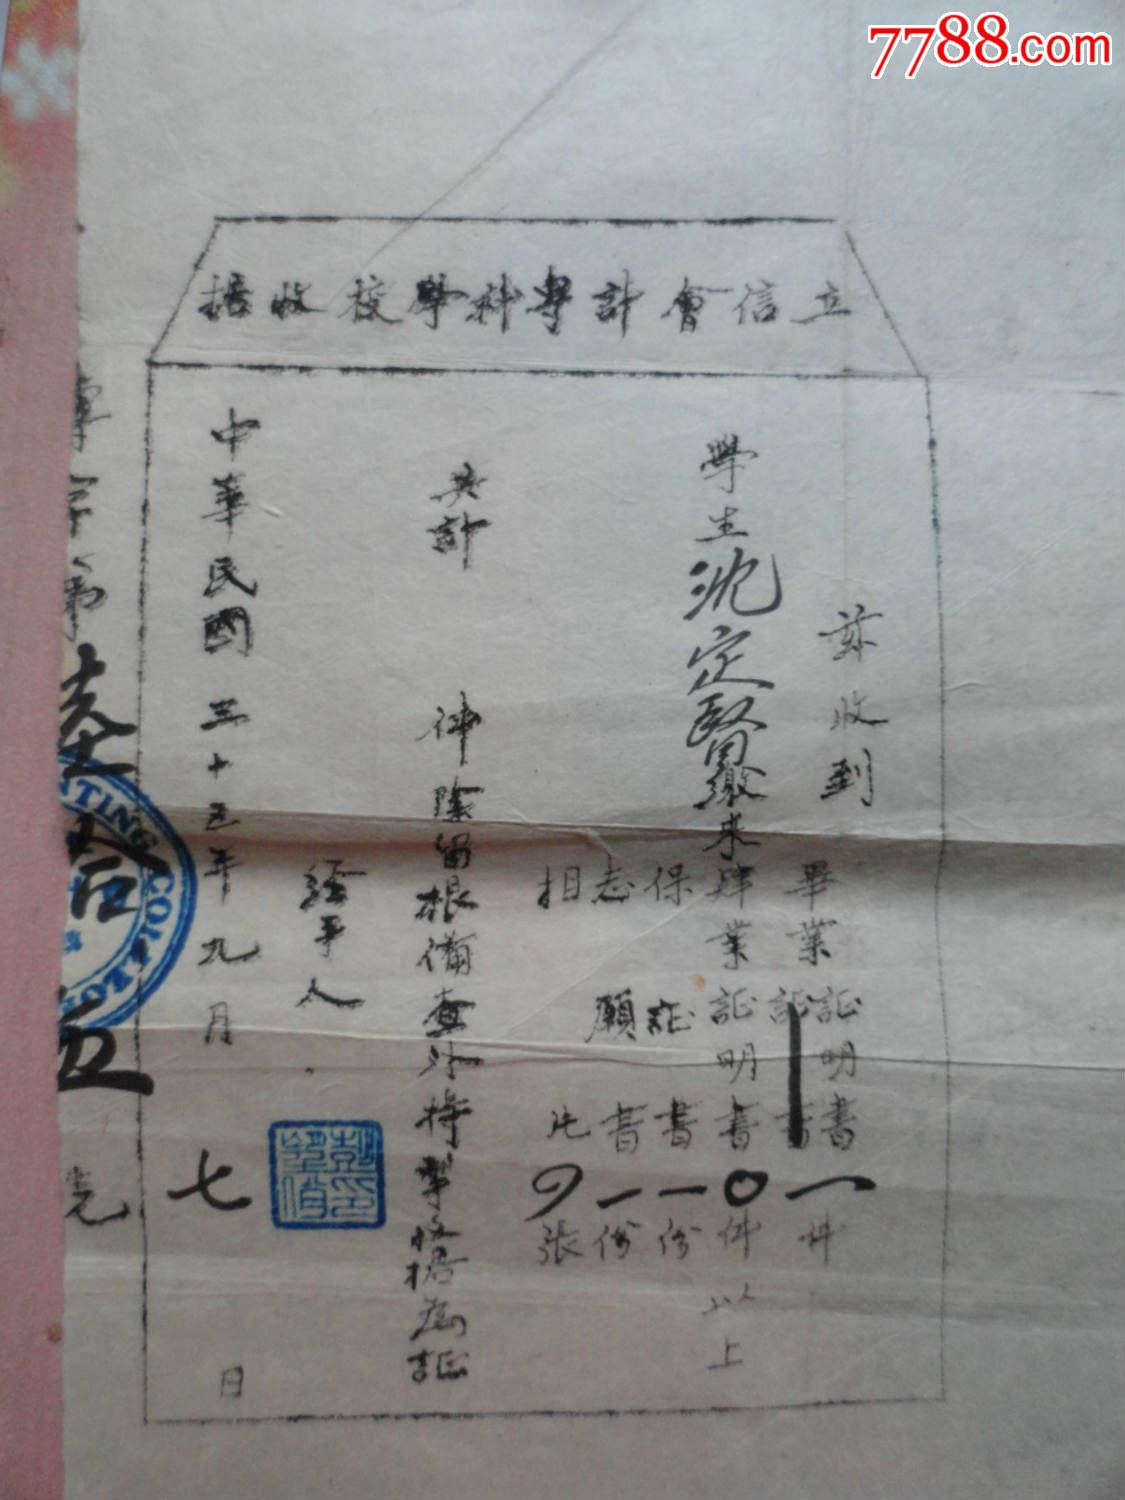 7788.com
立信會計專科學校收據
茲收到
畢業證明書一件
證書
學生沈定賢繳來肄業証明書0件以上
保証書一份
志願書一份
相片 張
共計 件除留根備查外特掣收據為証
經手人
中華民國三十五年九月七日
字第
伍
號
NTING COLLEGE